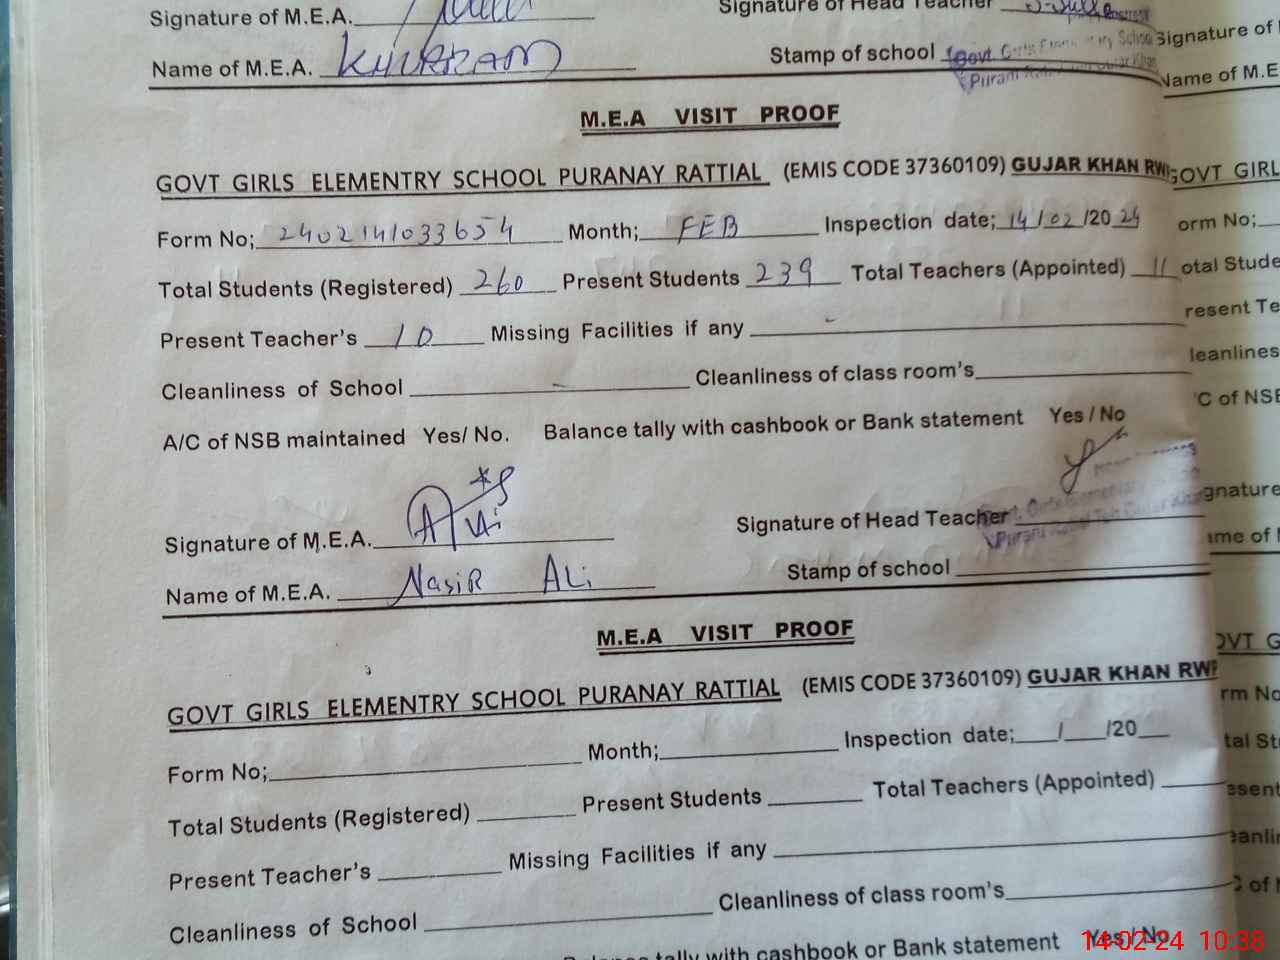 Signature of M.E.A. Signature of Head Teacher
Name of M.E.A. KHURRAM Stamp of school Govt. Girls Elementary School
Purani
M.E.A VISIT PROOF
GOVT GIRLS ELEMENTRY SCHOOL PURANAY RATTIAL (EMIS CODE 37360109) GUJAR KHAN RWP
Form No; 2402141033654 Month; FEB Inspection date; 14/02/2024
Total Students (Registered) 260 Present Students 239 Total Teachers (Appointed) 11
Present Teacher's 10 Missing Facilities if any -
Cleanliness of School - Cleanliness of class room's
A/C of NSB maintained Yes/ No. Balance tally with cashbook or Bank statement Yes / No
Signature of M.E.A. Signature of Head Teacher
Name of M.E.A. NASIR ALi Stamp of school
M.E.A VISIT PROOF
GOVT GIRLS ELEMENTRY SCHOOL PURANAY RATTIAL (EMIS CODE 37360109) GUJAR KHAN RWP
Form No; Month; Inspection date; / /20
Total Students (Registered) Present Students Total Teachers (Appointed)
Present Teacher's Missing Facilities if any
Cleanliness of School Cleanliness of class room's
Balance tally with cashbook or Bank statement Yes / No
Signature of
Name of M.E
GOVT GIRL
orm No;
otal Stude
resent Te
leanlines
C of NSB
gnature
me of
OVT G
rm No
tal St
esent
eanlin
of
14-02-24 10:38